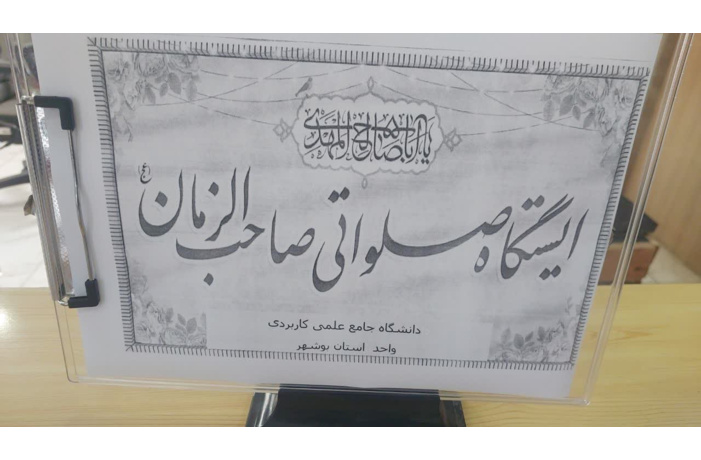 یا اباصالح المهدی
ایستگاه صلواتی صاحب الزمان (عج)
دانشگاه جامع علمی کاربردی
واحد استان بوشهر